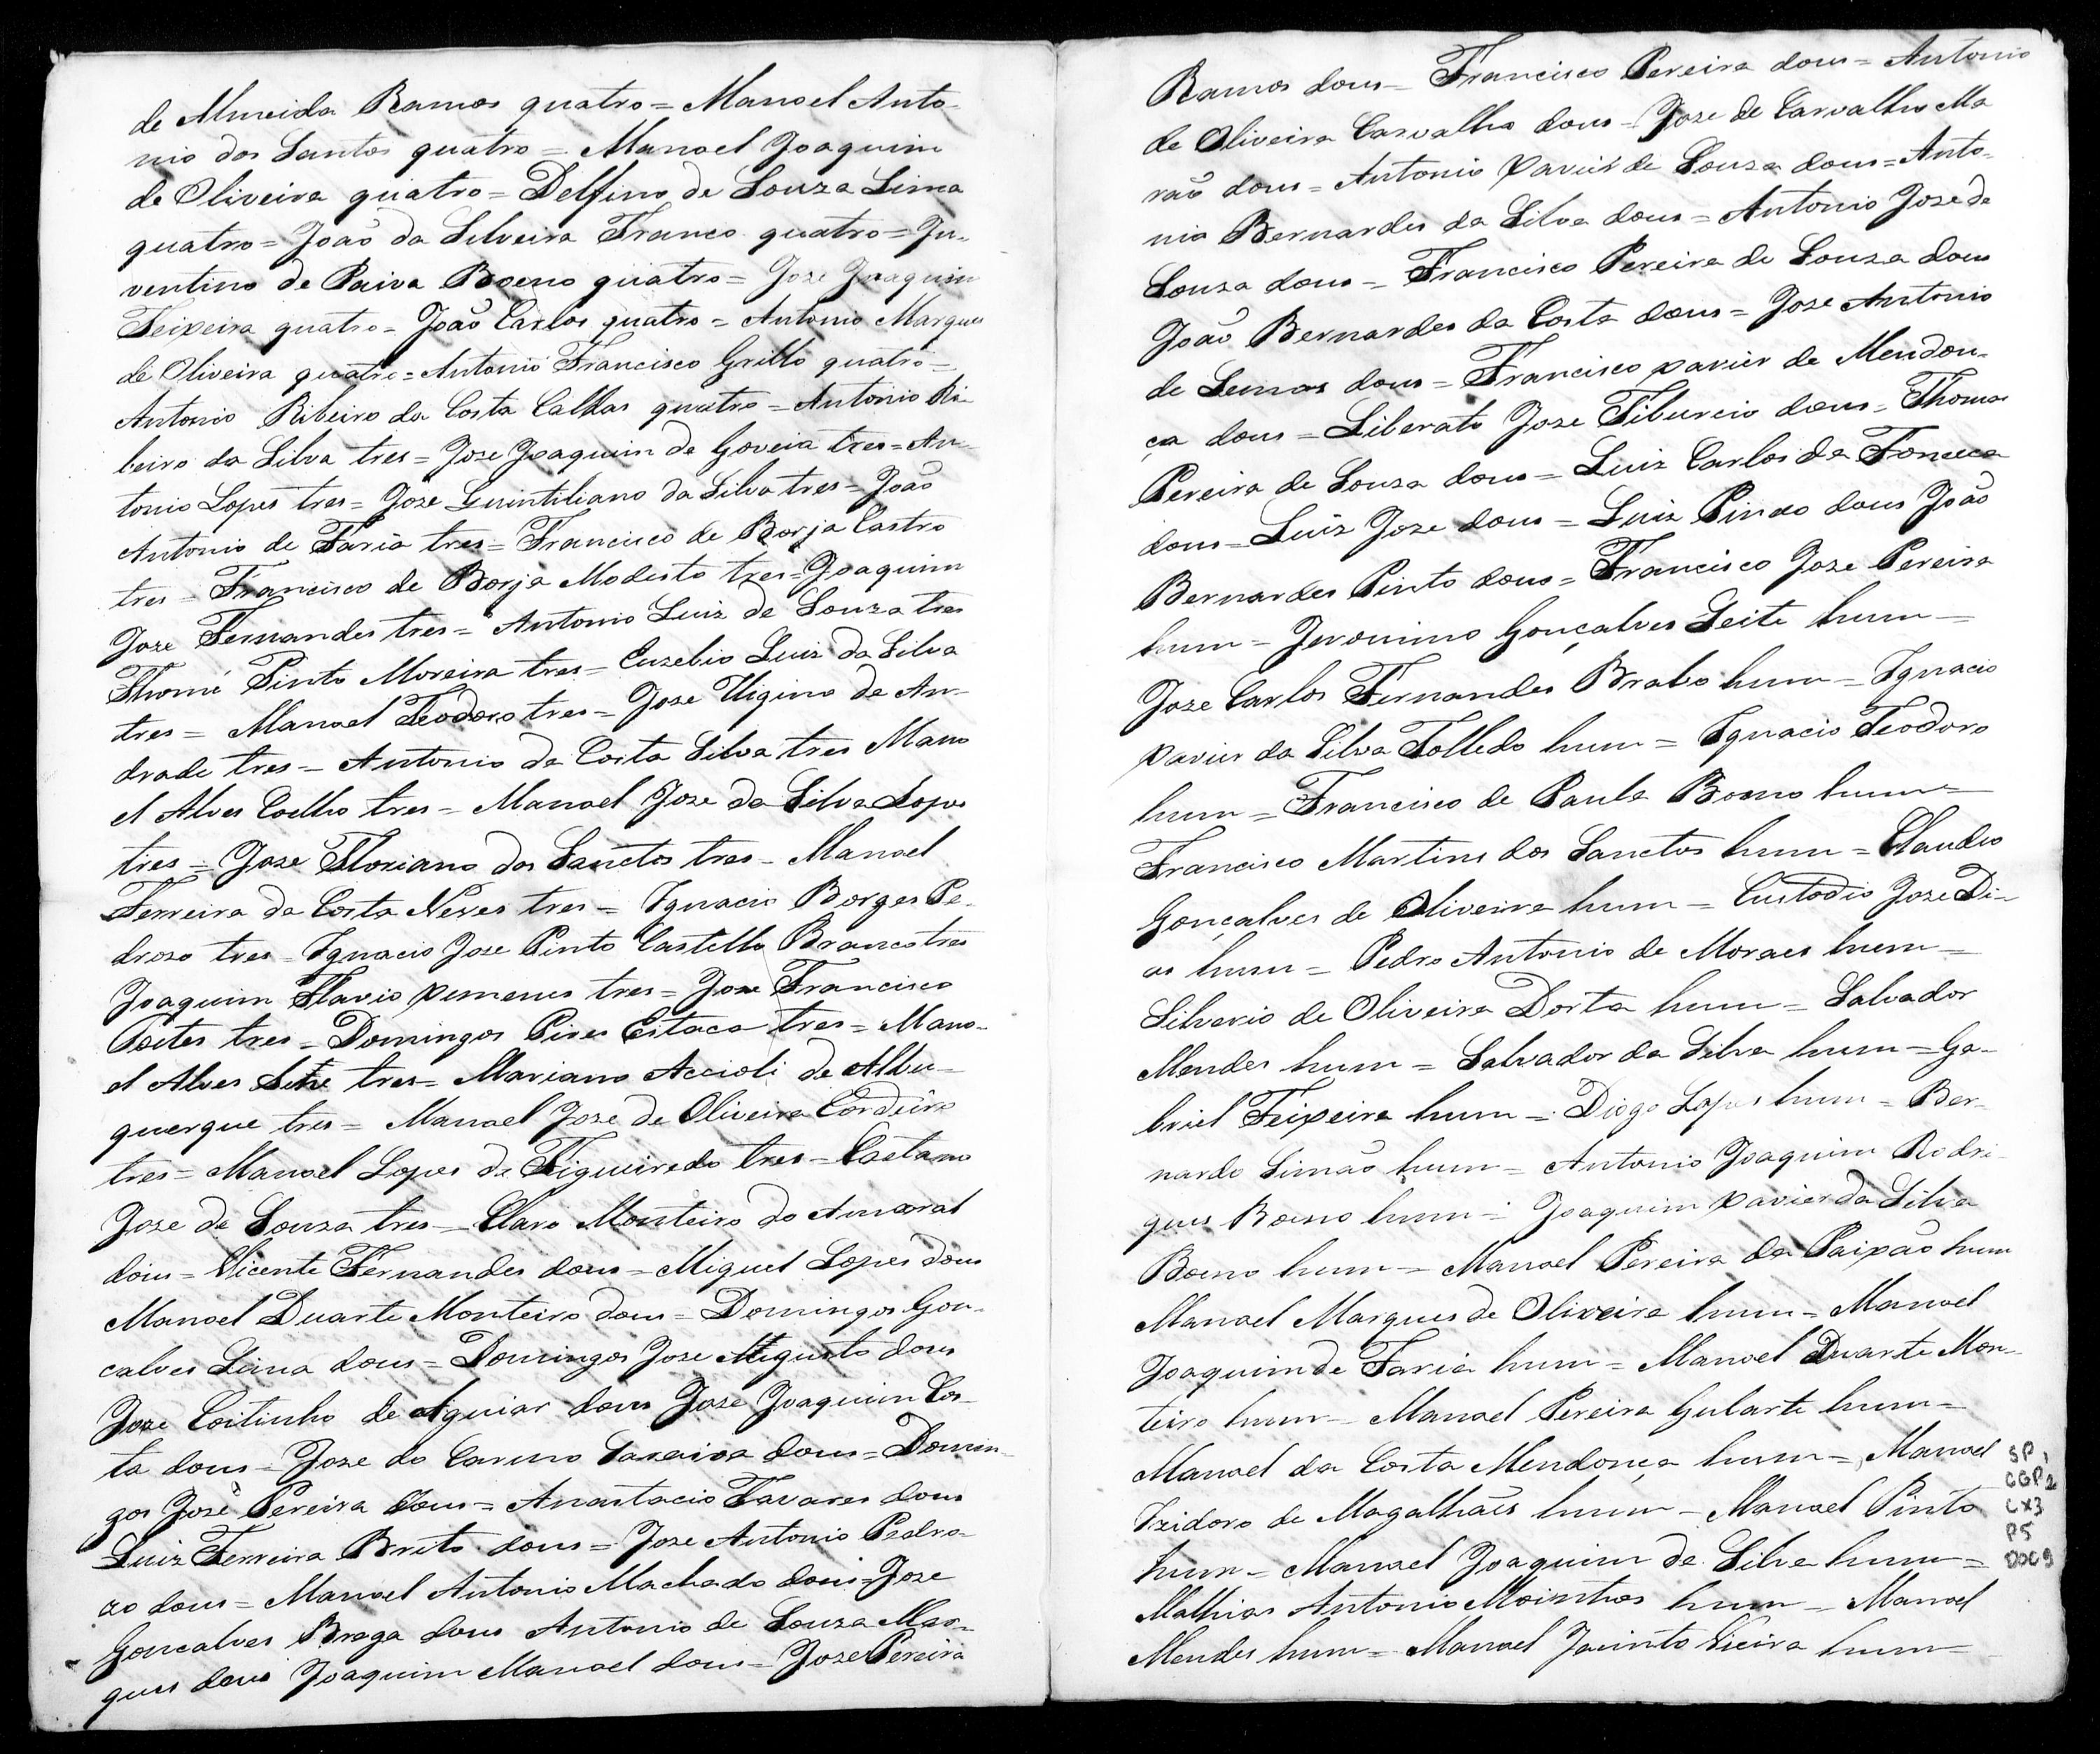 de Almeida Ramos quatro = Manoel Anto-
nio dos Santos quatro = Manoel Joaquim
de Oliveira quatro = Delfino de Souza Lima
quatro = João da Silveira Franco quatro = Ju-
ventino de Paiva Boeno quatro = Joze Joaquim
Teixeira quatro = João Carlos quatro = Antonio Marques
de Oliveira quatro = Antonio Francisco Grillo quatro =
Antonio Ribeiro da Costa Caldas quatro = Antonio Ri-
beiro da Silva tres = Joze Joaquim de Goveia tres = An-
tonio Lopes tres = Joze Quintiliano da Silva tres = João
Antonio de Faria tres = Francisco de Borja Castro
tres = Francisco de Borja Modesto tres = Joaquim
Joze Fernandes tres = Antonio Luiz de Souza tres
Thomé Pinto Moreira tres = Euzebio Luiz da Silva
tres = Manoel Teodoro tres = Joze Higino de An-
drade tres = Antonio da Costa Silva tres Mano
el Alves Coelho tres = Manoel Joze da Silva Lopes
tres = Joze Floriano dos Sanctos tres = Manoel
Ferreira da Costa Neves tres = Ignacio Borges Pe-
drozo tres = Ignacio Joze Pinto Castello Branco tres
Joaquim Flavio Xemenes tres = Joze Francisco
tres = Domingos Pires Estaca tres = Mano-
el Alves tres = Mariano Accioli de Albu-
querque tres = Manoel Joze de Oliveira Cordeiro
tres = Manoel Lopes de Figueiredo tres = Caetano
Joze de Souza tres = Claro Monteiro do Amaral
dois = Vicente Fernandes dous = Miguel Lopes dous
Manoel Duarte Monteiro dous = Domingos Gon-
calves Lima dous = Domingos Joze dous
Joze Coitinho de Aguiar dous Joze Joaquim Cos-
ta dous = Joze do Carmo Saraiva dous = Domin-
gos José Pereira dous = Anastacio Tavares dous
Luiz Ferreira Brito dous = Joze Antonio Pedro-
zo dous = Manoel Antonio Machado dous = Joze
Goncalves Braga dous Antonio de Souza Mar-
ques dous Joaquim Manoel dous = Joze Pereira
Ramos dous = Francisco Pereira dous = Antonio
de Oliveira Carvalho dous = Joze de Carvalho Ma
rão dous = Antonio Xavier de Souza dous = Anto-
nio Bernardes da Silva dous = Antonio Joze de
Souza dous = Francisco Pereira de Souza dous
João Bernardes da Costa dous = Joze Antonio
de Lemos dous = Francisco Xavier de Mendon-
ça dous = Liberato Joze Tiburcio dous = Thomas
Pereira de Souza dous = Luiz Carlos da Fonceca
dous = Luiz Joze dous = Luiz dous João
Bernardes Pinto dous = Francisco Joze Pereira
hum = Jeronimo Gonçalves Leite hum =
Joze Carlos Fernandes Brabo hum = Ignacio
Xavier da Silva Tolledo hum = Ignacio Teodoro
hum = Francisco de Paula Boeno hum =
Francisco Martins dos Sanctos hum = Claudio
Gonçalves de Oliveira hum = Custodio Joze Di-
as hum = Pedro Antonio de Moraes hum =
Silverio de Oliveira Dorta hum = Salvador
Mendes hum = Salvador da Silva hum = Ga-
briel Teixeira hum = Diogo Lopes hum = Ber-
nardo Simão hum = Antonio Joaquim Rodri-
gues Boeno hum = Joaquim Xavier da Silva
Boeno hum = Manoel Pereira da Paixão hum
Manoel Marques de Oliveira hum = Manoel
Joaquim de Faria hum = Manoel Duarte Mon-
teiro hum = Manoel Pereira Gularte hum =
Manoel da Costa Mendonça hum = Manoel
Izidoro de Magalhães hum = Manoel Pinto
hum = Manoel Joaquim da Silva hum =
Mathias Antonio Moinhos hum = Manoel
Mendes hum = Manoel Jacinto Vieira hum =
SP1
CGP2
CX3
P5
DOC9